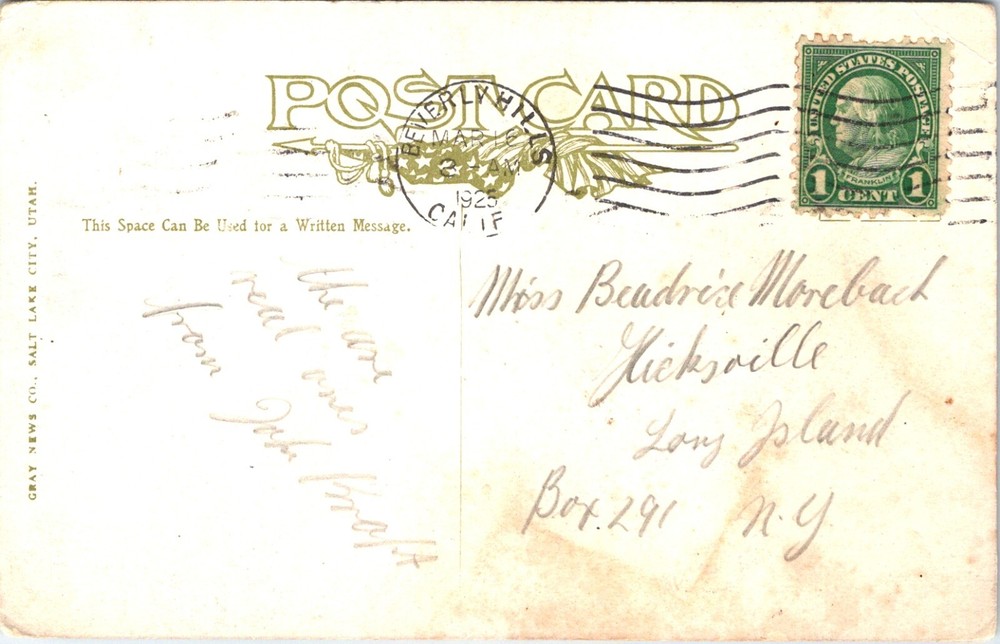 POST CARD
BEVERLY HILLS
MAR 16
AM
1925
CALIF
UNITED STATES POSTAGE
FRANKLIN
1 CENT 1
This Space Can Be Used for a Written Message.
GRAY NEWS CO., SALT LAKE CITY, UTAH.
the are
real ones
from John
Miss Beadrice Morebach
Hicksville
Long Island
Box 291 N.Y.